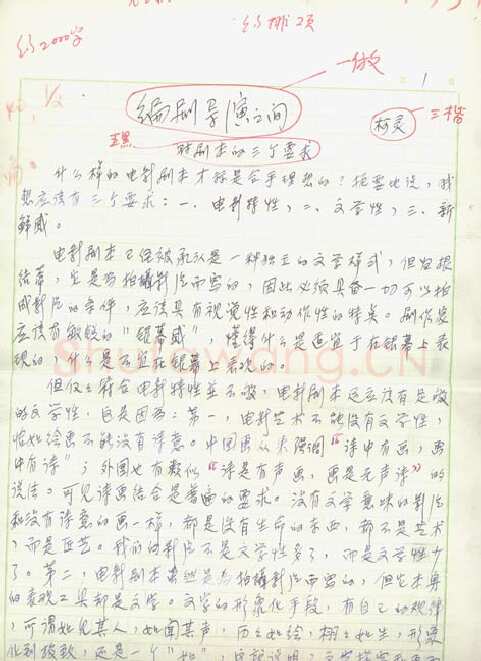 约排2页
约2000字
1
编剧导演之间
柯灵
三楷
对剧本的三个要求
什么样的电影剧本才算是合乎理想的？扼要地说，我
想应该有三个要求：一、电影特性，二、文学性，三、新
鲜感。
电影剧本已经被承认是一种独立的文学样式，但归根
结蒂，它是为拍摄影片而写的，因此必须具备一切可以拍
成影片的条件，应该具有视觉性和动作性的特点。剧作家
应该有敏锐的“银幕感”，懂得什么是适宜于在银幕上表
现的，什么是不宜在银幕上表现的。
但仅仅符合电影特性并不够，电影剧本还应该有足够
的文学性，这是因为：第一，电影艺术不能没有文学性，
恰如绘画不能没有诗意。中国画从来强调“诗中有画，画
中有诗”；外国也有类似“诗是有声画，画是无声诗”的
说法。可见诗画结合是普遍的要求。没有文学意味的影片
和没有诗意的画一样，都是没有生命的东西，都不是艺术
，而是匠艺。我们的影片不是文学性多了，而是文学性少
了。第二，电影剧本虽然是为拍摄影片而写的，但它本身
的表现工具却是文学。文学的形象化手段，有自己的规律
，可谓如见其人，如闻其声，历历如绘，栩栩如生，形象
化到极致，还是一个“如”，
ShuFaWang.CN